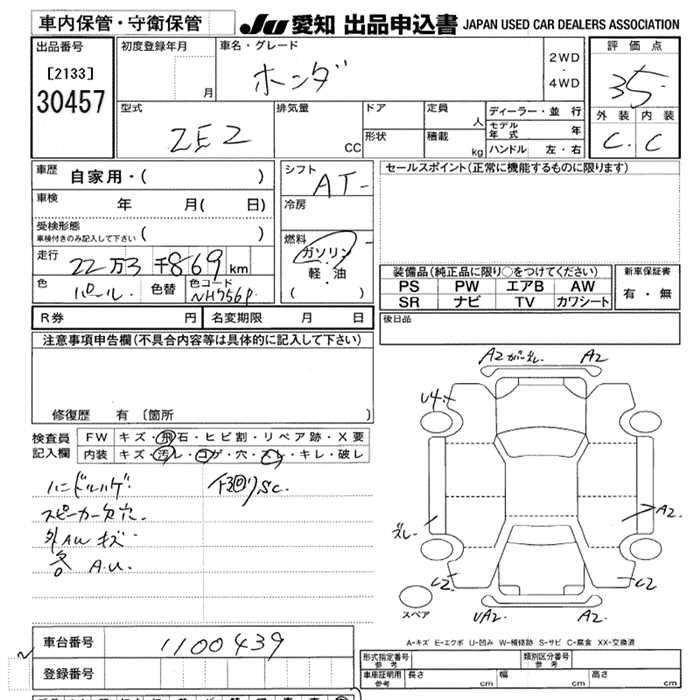 車内保管・守衛保管
JU 愛知 出品申込書 JAPAN USED CAR DEALERS ASSOCIATION
出品番号
[2133]
30457
初度登録年月
月
車名・グレード
ホンダ
2WD
・
4WD
評価点
3.5
外装 内装
C C
型式
ZE2
排気量
CC
ドア
形状
定員
人
積載
kg
ディーラー・並行
モデル年式 年
ハンドル 左・右
車歴
自家用・( )
車検
年 月( 日)
受検形態
車検付きのみ記入して下さい ( )
走行
22万3千869km
色
パール
色替
色コード
NH756P
シフト
AT
冷房
燃料
ガソリン
軽・油
( )
セールスポイント(正常に機能するものに限ります)
装備品(純正品に限り○をつけてください)
PS PW エアB AW
SR ナビ TV カワシート
新車保証書
有・無
後日品
R券 円
名変期限 月 日
注意事項申告欄(不具合内容等は具体的に記入して下さい)
修復歴 有〔箇所 〕
検査員記入欄
FW キズ・飛石・ヒビ割・リペア跡・X要
内装 キズ・汚レ・コゲ・穴・スレ・キレ・破レ
ハンドルハゲ
スピーカー欠穴
外AWキズ
各A.U.
下回りSC.
A2 ガバズレ
A2
U4
A2
ズレ
C2
C2
UA2
A2
スペア
A-キズ E-エクボ U-凹み W-補修跡 S-サビ C-腐食 XX-交換済
車台番号
1100439
登録番号
形式指定番号 参考
類別区分番号 参考
車庫証明用 参考
長さ cm
幅 cm
高さ cm